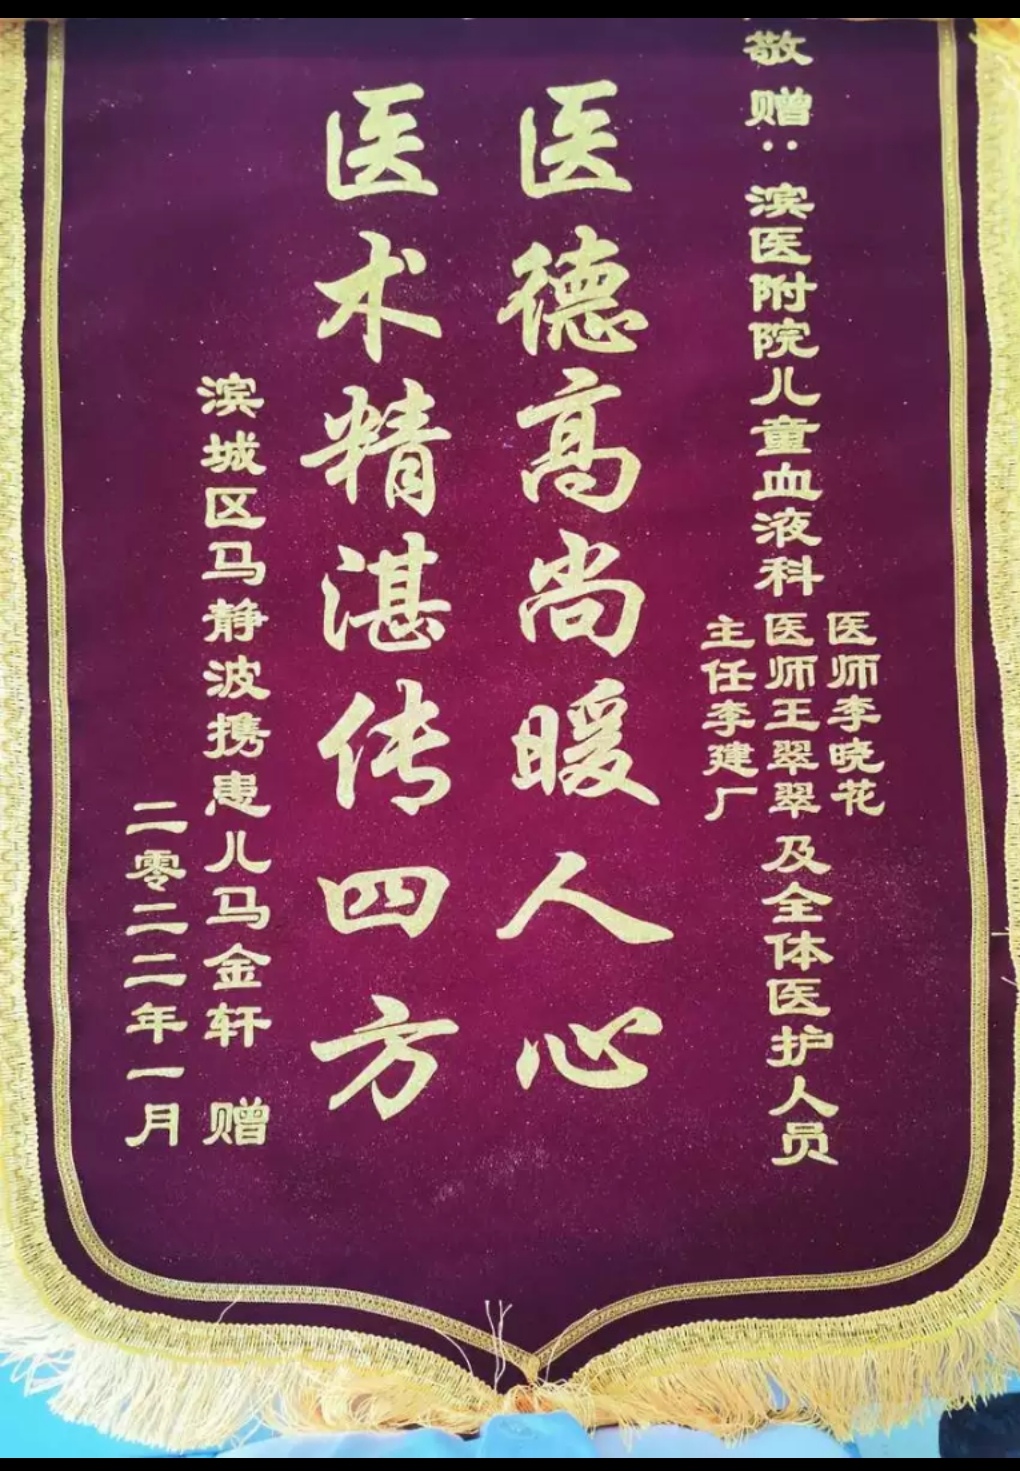 敬赠：滨医附院儿童血液科
医师李晓花
医师王翠翠
主任李建厂
及全体医护人员
医德高尚暖人心
医术精湛传四方
滨城区马静波携患儿马金轩 赠
二零二二年一月